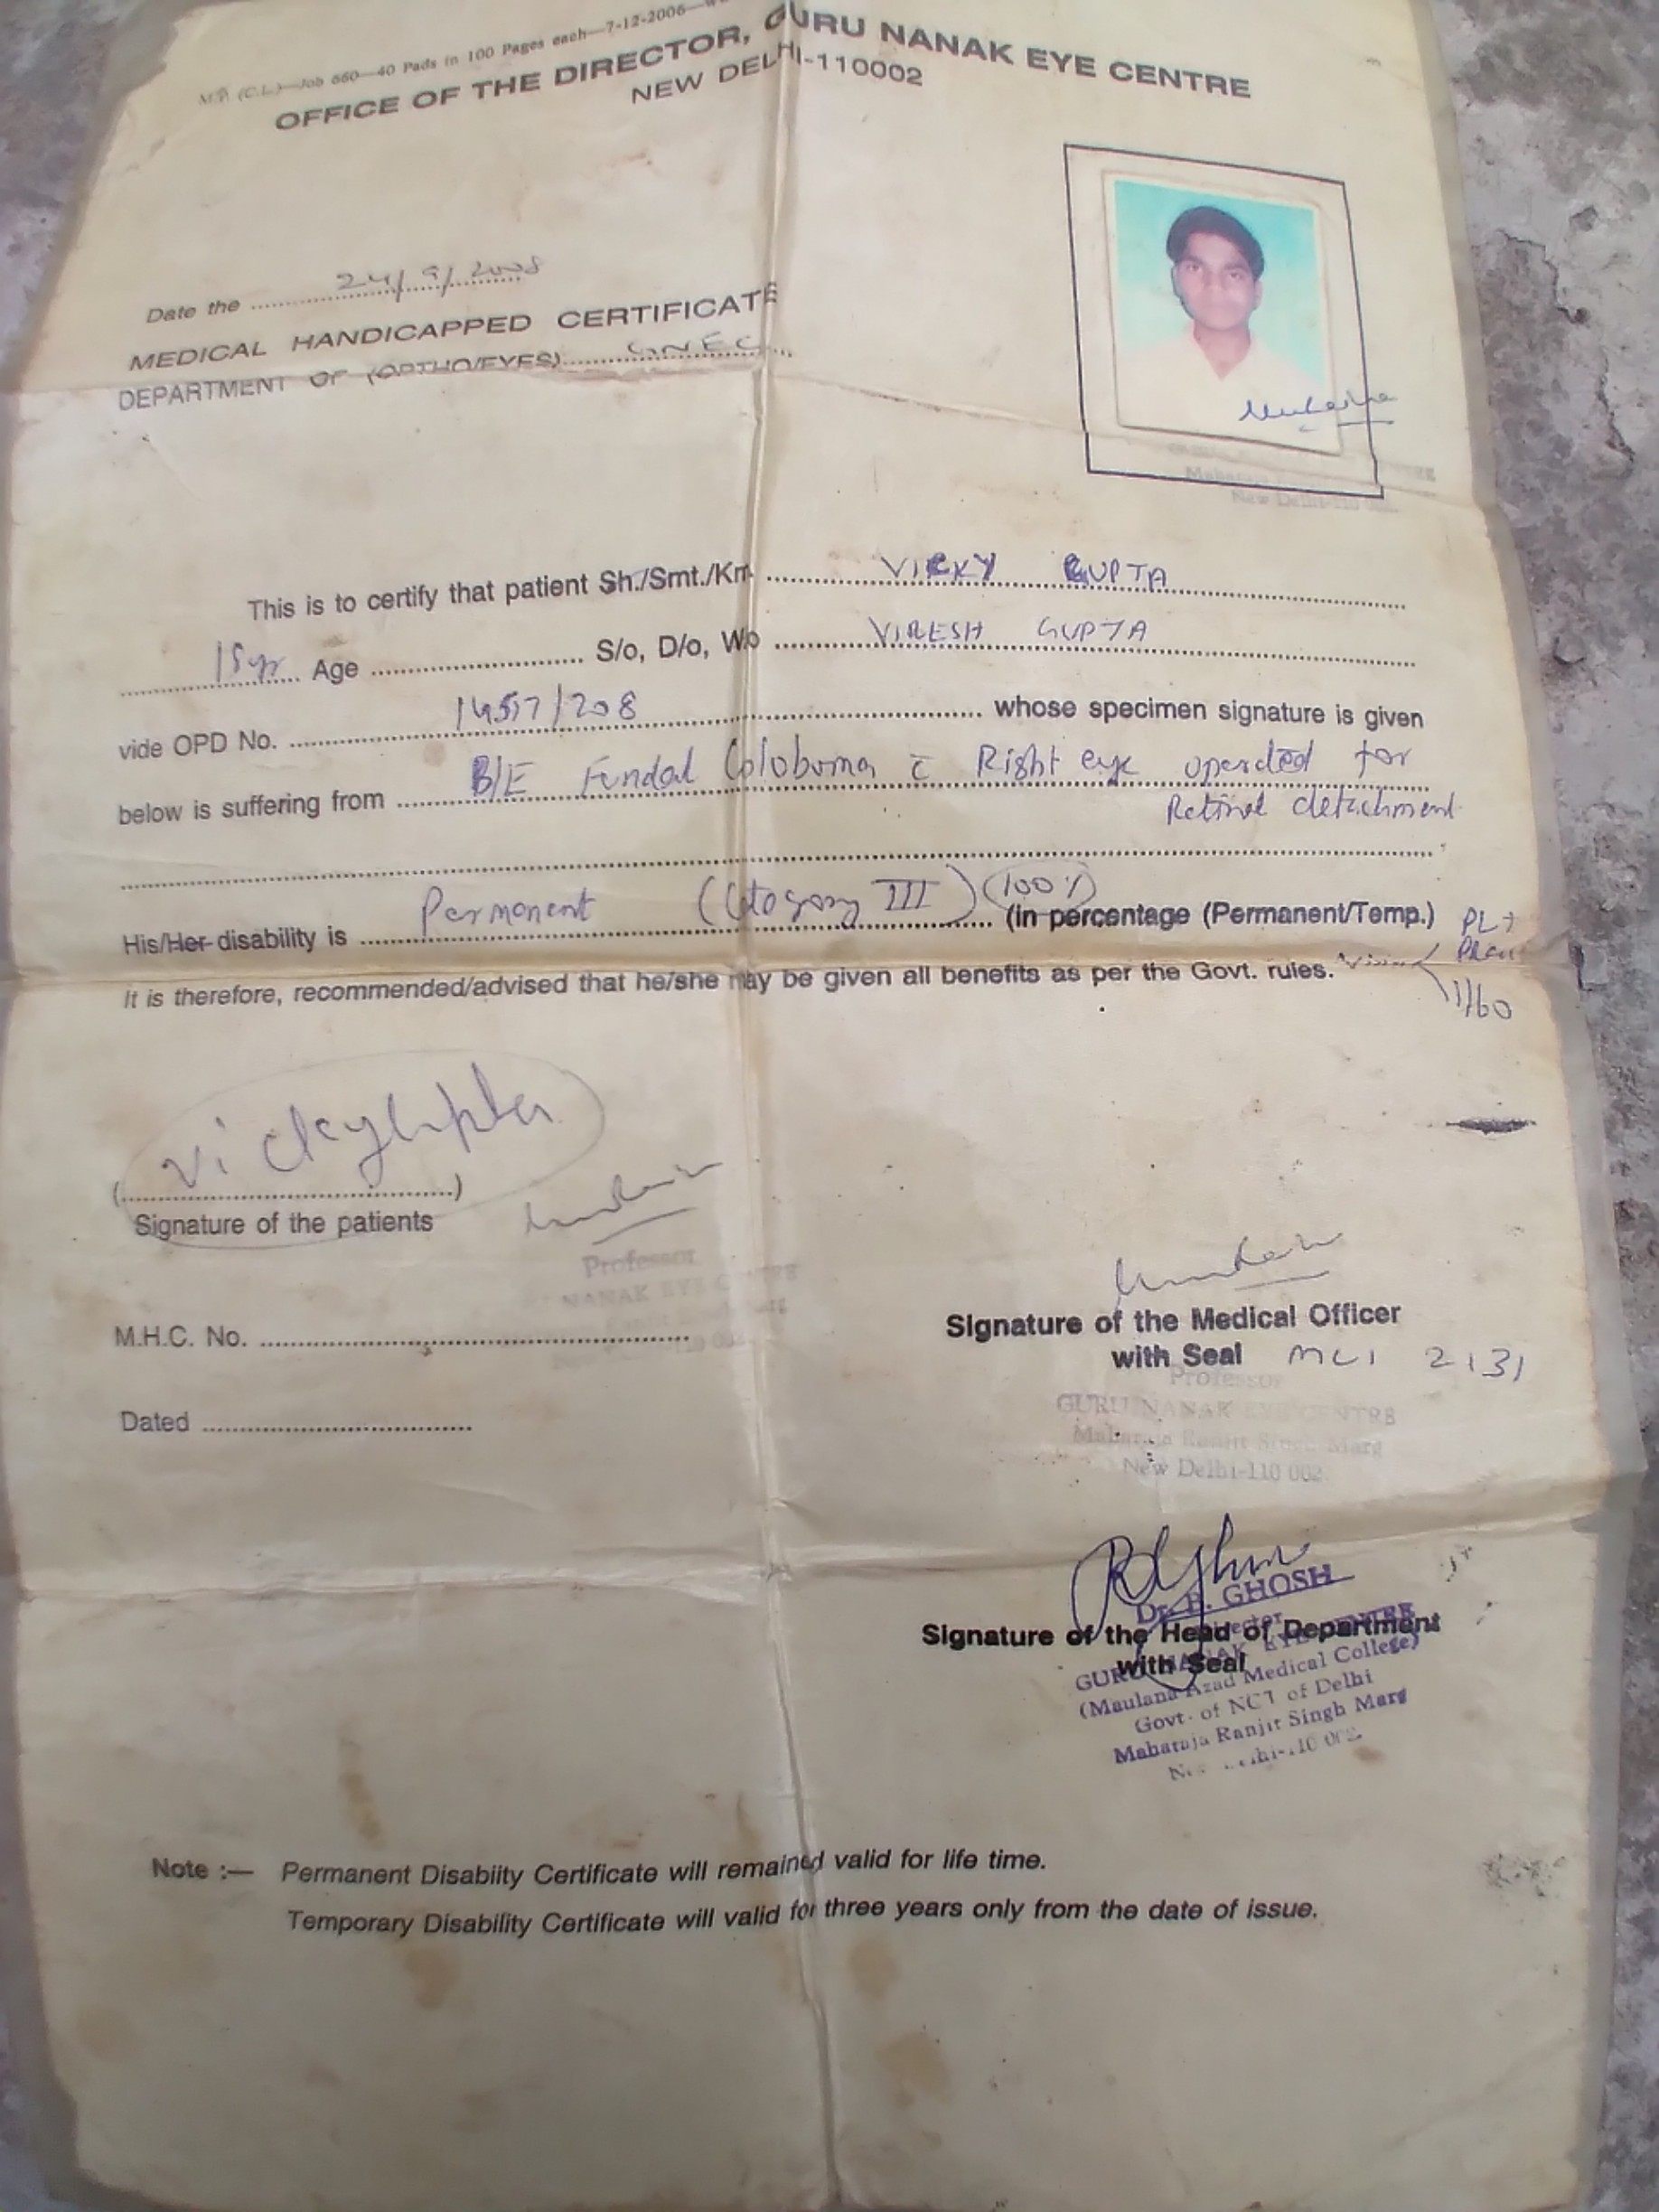 M.P. (C.L.)—Job 660—40 Pads in 100 Pages each—7-12-2006—
OFFICE OF THE DIRECTOR, GURU NANAK EYE CENTRE
NEW DELHI-110002
Date the 24/9/2008
MEDICAL HANDICAPPED CERTIFICATE
DEPARTMENT OF (ORTHO/EYES) GNEC
This is to certify that patient Sh./Smt./Km. VICKY GUPTA
15yr Age S/o, D/o, W/o VIRESH GUPTA
vide OPD No. whose specimen signature is given
below is suffering from B/E Fundal Coloboma c̄ Right eye operated for
Retinal detachment
His/Her disability is Permanent (Category III) (100%) (in percentage (Permanent/Temp.)
PL+
It is therefore, recommended/advised that he/she may be given all benefits as per the Govt. rules. Vision
1/60
Vicky Gupta
(..............................)
Signature of the patients
Professor
NANAK EYE CENTRE
M.H.C. No.
Signature of the Medical Officer
with Seal MCI 2131
Professor
GURU NANAK EYE CENTRE
Maharaja Ranjit Singh Marg
New Delhi-110 002
Dated
Dr. B. GHOSH
Director
Signature of the Head of Department
with Seal
GURU NANAK EYE CENTRE
(Maulana Azad Medical College)
Govt. of NCT of Delhi
Maharaja Ranjit Singh Marg
New Delhi-110 002
Note :— Permanent Disabiity Certificate will remained valid for life time.
Temporary Disability Certificate will valid for three years only from the date of issue.